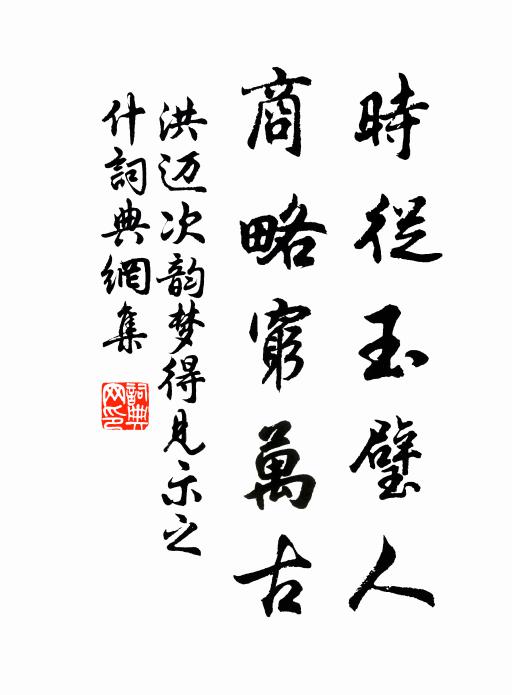 時從玉璧人
商略窮萬古
洪迈次韵梦得見示之
什詞典網集
詞典网印